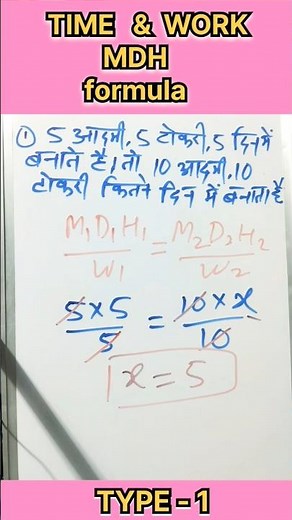 TIME & WORK
MDH
formula
① 5 आदमी, 5 टोकरी, 5 दिन में
बनाते हैं। तो 10 आदमी, 10
टोकरी कितने दिन में बनाता है
M₁D₁H₁/W₁ = M₂D₂H₂/W₂
5×5/5 = 10×x/10
x = 5
TYPE - 1